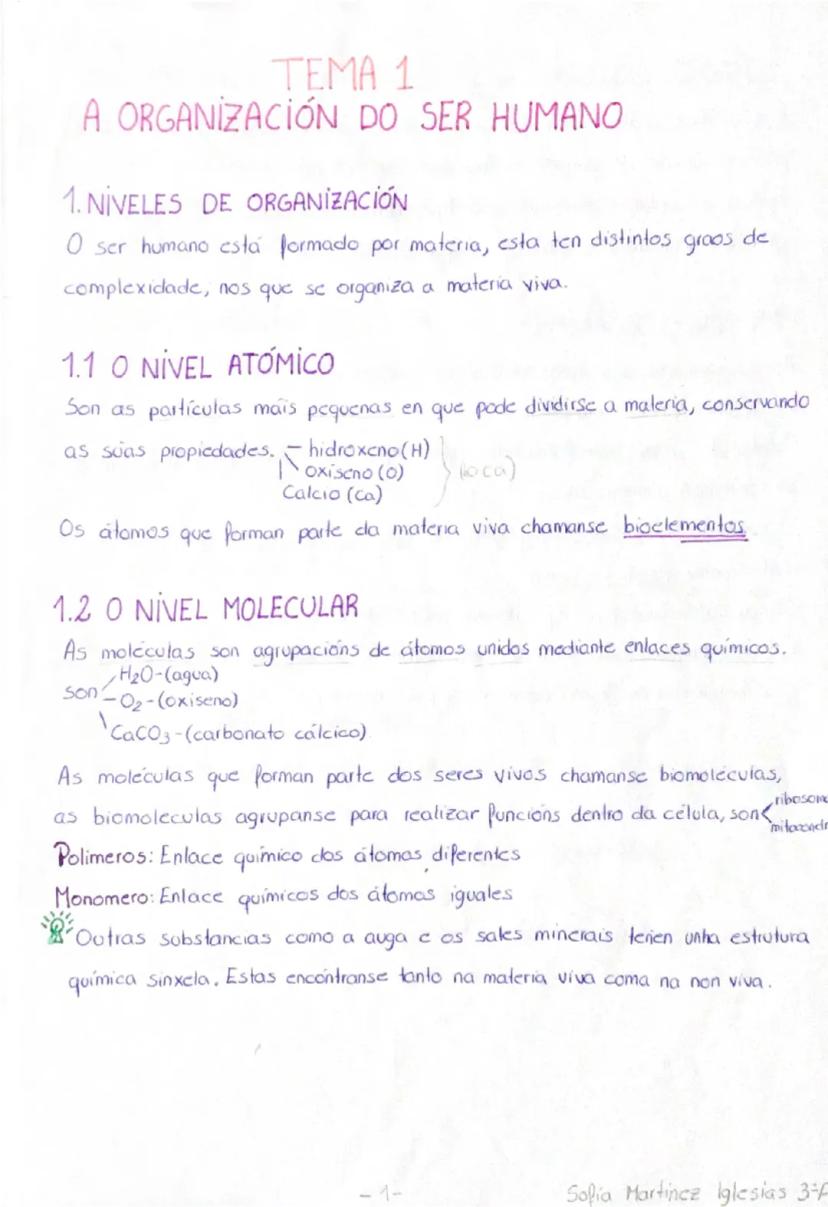 TEMA 1
A ORGANIZACIÓN DO SER HUMANO
1. NIVELES DE ORGANIZACIÓN
O ser humano está formado por materia, esta ten distintos graos de
complexidade, nos que se organiza a materia viva.
1.1 O NIVEL ATÓMICO
Son as partículas máis pequenas en que pode dividirse a materia, conservando
as súas propiedades. - hidroxeno (H)
oxíseno (O)
Calcio (Ca)
Os átomos que forman parte da materia viva chamanse bioelementos.
1.2 O NIVEL MOLECULAR
As moléculas son agrupacións de átomos unidos mediante enlaces químicos.
H2O-(agua)
son -O2-(oxiseno)
CaCO3-(carbonato cálcico)
As moléculas que forman parte dos seres vivos chamanse biomoléculas,
ribosom
as biomoleculas agrupanse para realizar funcións dentro da célula, son
Polimeros: Enlace químico dos átomas diferentes
Monomero: Enlace químicos dos átomos iguales
Outras substancias como a auga e os sales minerais teñen unha estrutura
química sinxela. Estas encóntranse tanto na materia viva coma na non viva.
-1-
Sofía Martínez Iglesias 3ºA